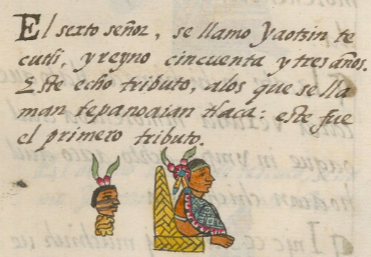 El sexto señor, se llamo Yaotzin te
cutli, y reyno cincuenta y tres años.
Este echo tributo, alos que se lla
man tepanoaian tlaca: este fue
el primero tributo.